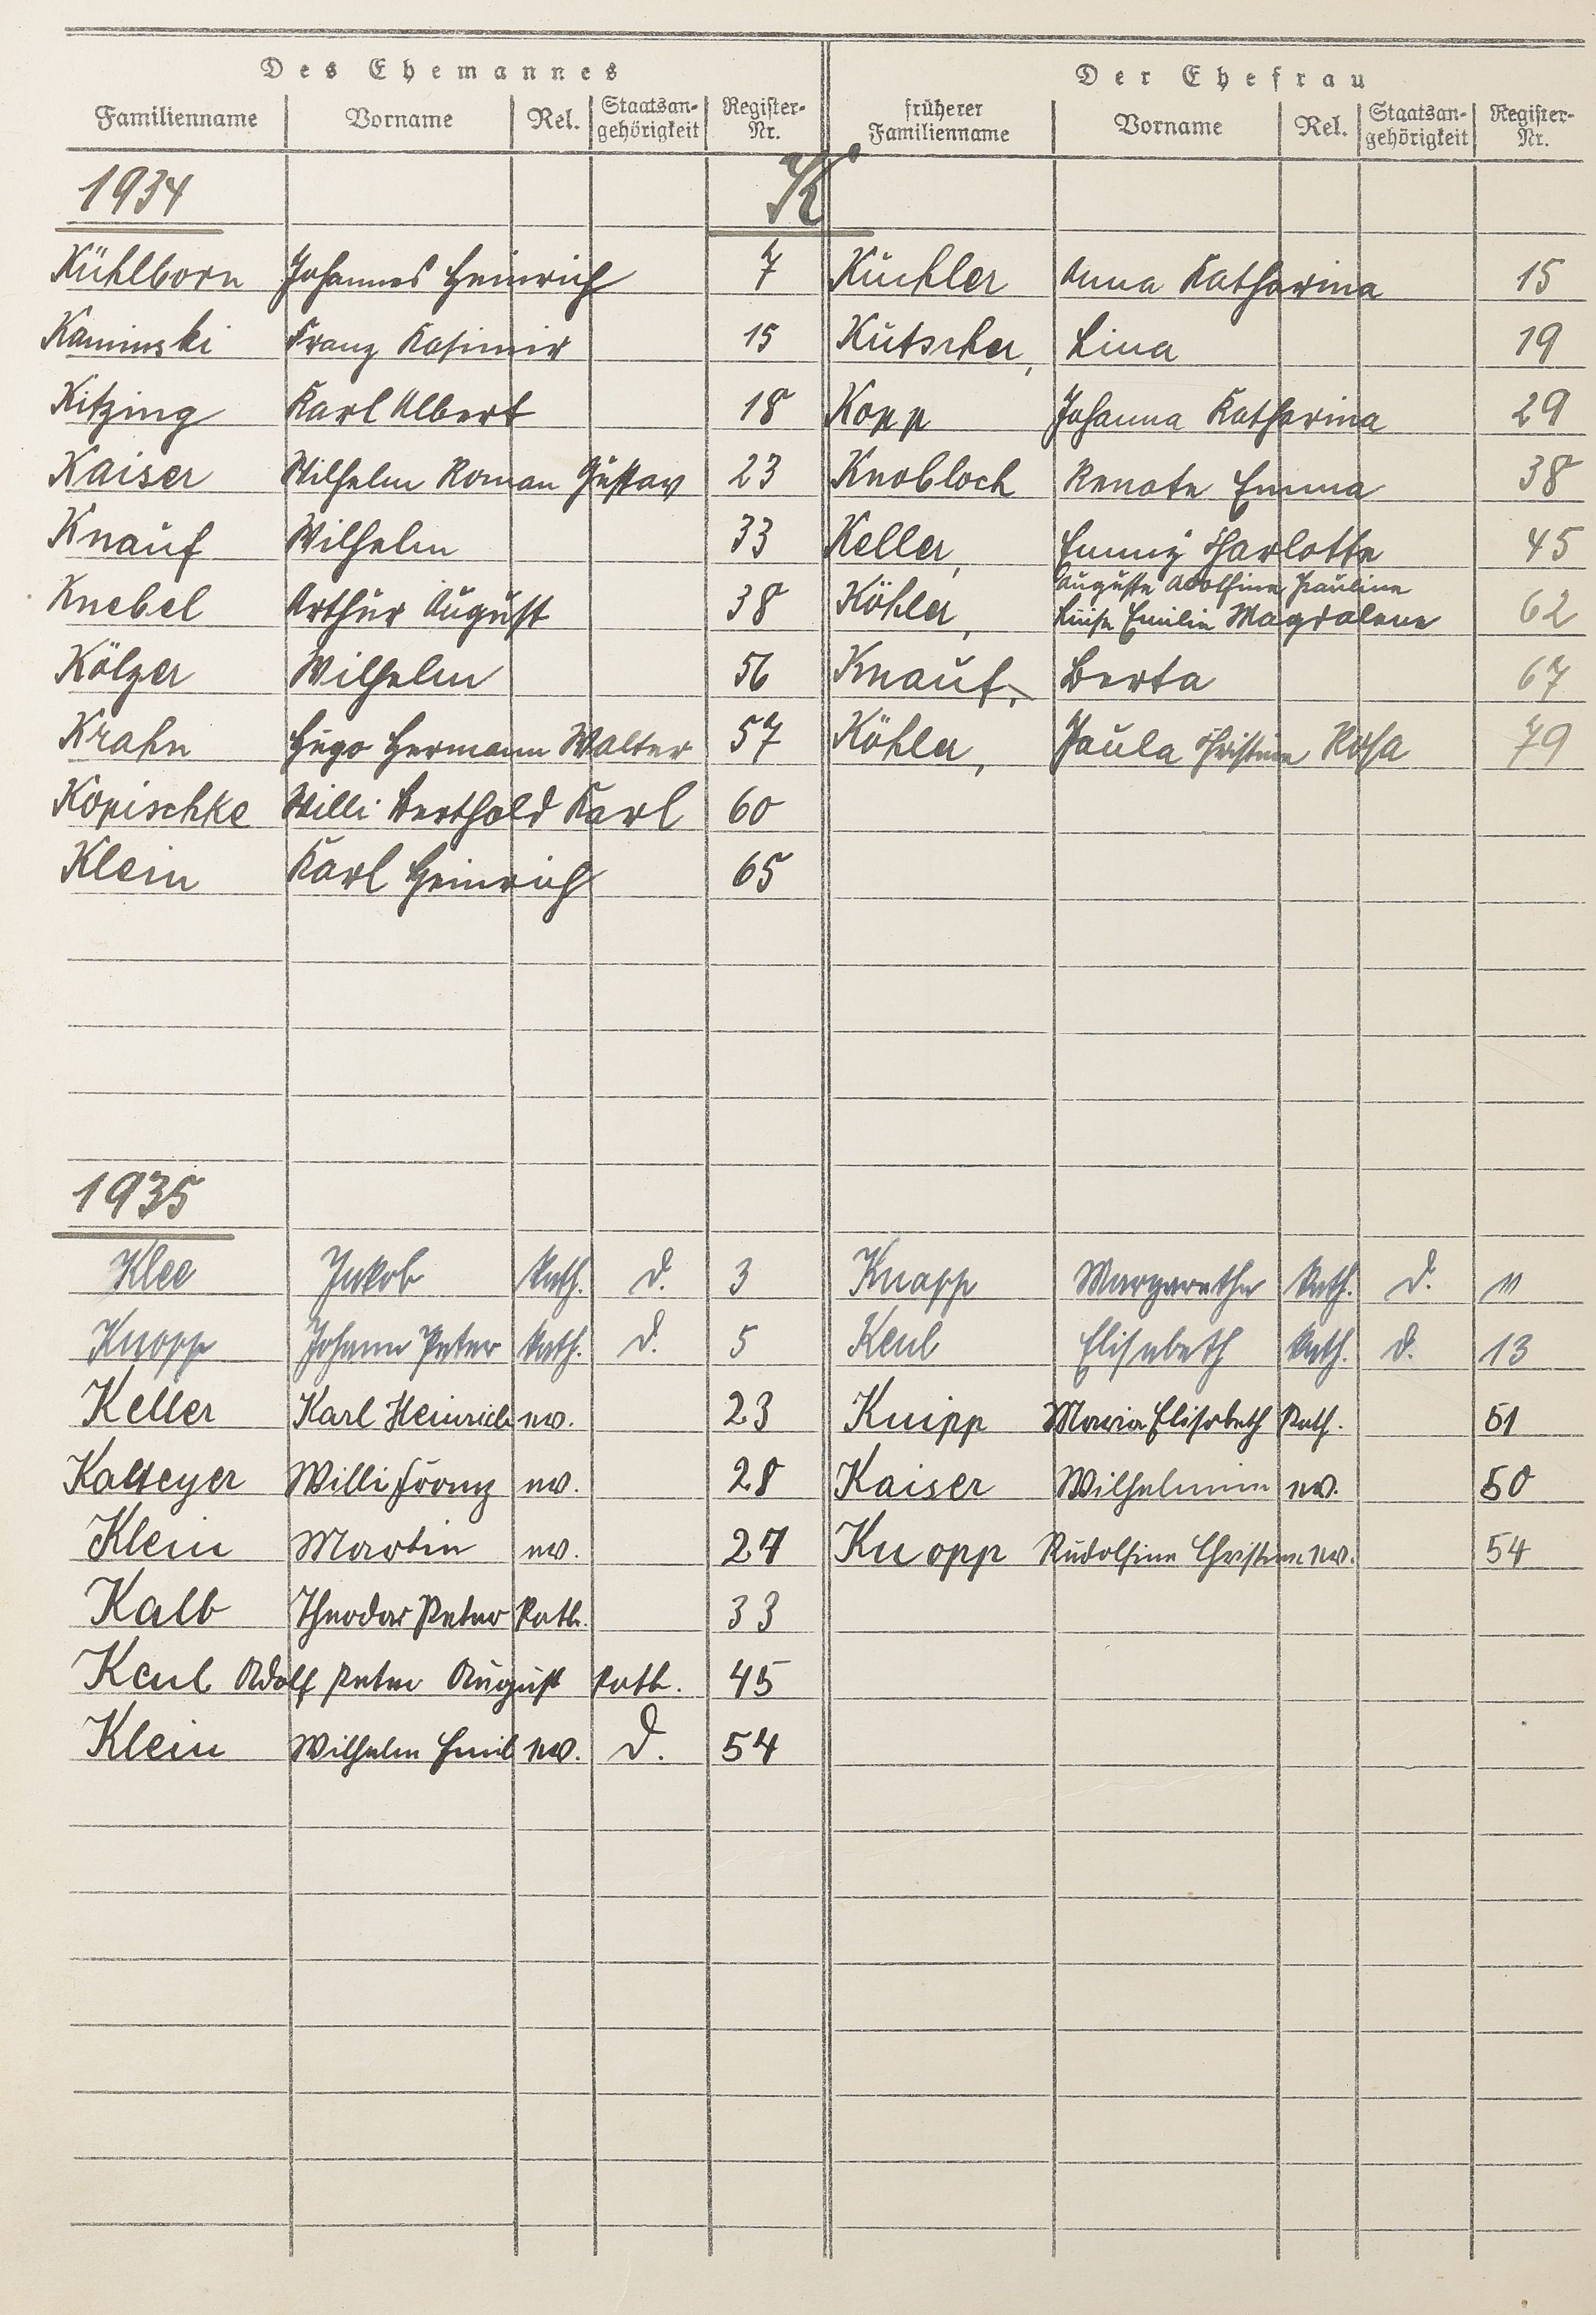 Des Ehemannes Der Ehefrau
Familienname Vorname Rel. Staatsan-gehörigkeit Register-Nr. früherer Familienname Vorname Rel. Staatsan-gehörigkeit Register-Nr.
1934 K
Kühlborn Johannes Heinrich 7 Küchler Anna Katharina 15
Kaminski Franz Kasimir 15 Kutscher, Lina 19
Kitzing Karl Albert 18 Kopp Johanna Katharina 29
Kaiser Wilhelm Roman Gustav 23 Knobloch Renate Emma 38
Knauf Wilhelm 33 Keller, Emmy Charlotte 45
Auguste Adolfine Pauline
Knebel Arthur August 38 Köhler, Luise Emilie Magdalene 62
Kölzer Wilhelm 56 Knauf, Berta 67
Krahn Hugo Hermann Walter 57 Köhler, Paula Christine Rosa 79
Kopischke Willi Berthold Karl 60
Klein Karl Heinrich 65
1935
Klee Jakob kath. d. 3 Knapp Margaretha kath. d. 11
Knopp Johann Peter kath. d. 5 Keul Elisabeth kath. d. 13
Keller Karl Heinrich ev. 23 Knipp Maria Elisabeth Kath. 51
Kalteyer Willi Franz ev. 28 Kaiser Wilhelmine ev. 50
Klein Martin ev. 27 Knopp Rudolfine Christine ev. 54
Kalb Theodor Peter Kath. 33
Keul Adolf Peter August Kath. 45
Klein Wilhelm Emil ev. d. 54